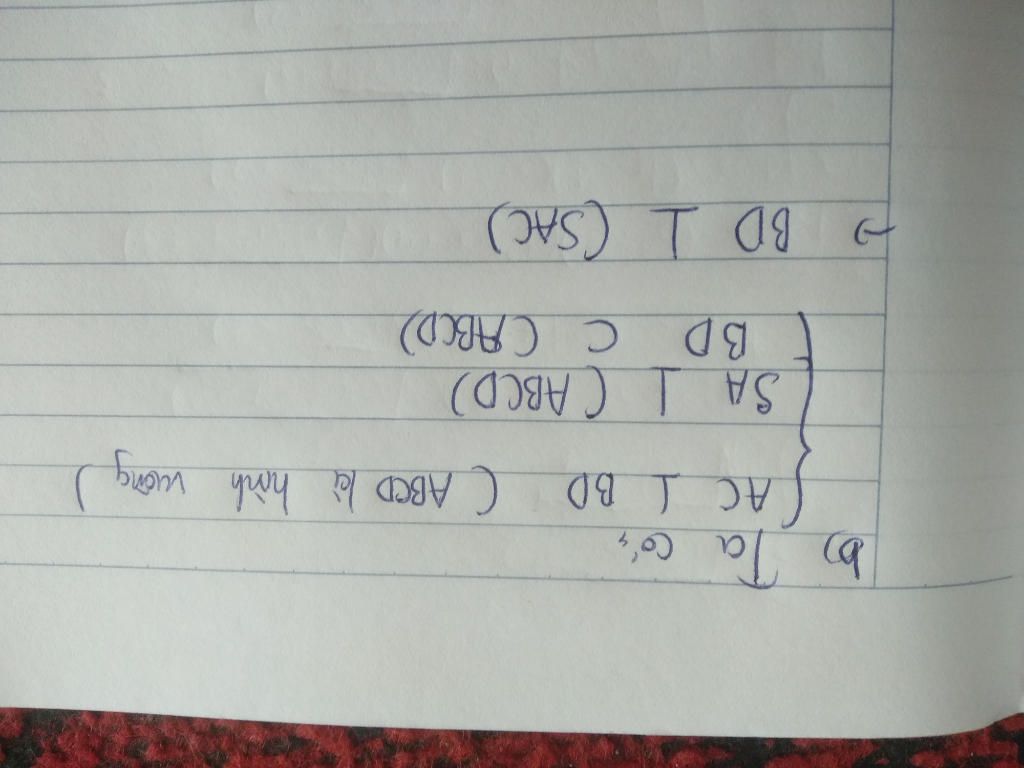 b) Ta có:
{ AC ⊥ BD (ABCD là hình vuông)
SA ⊥ (ABCD)
BD ⊂ (ABCD)
→ BD ⊥ (SAC)